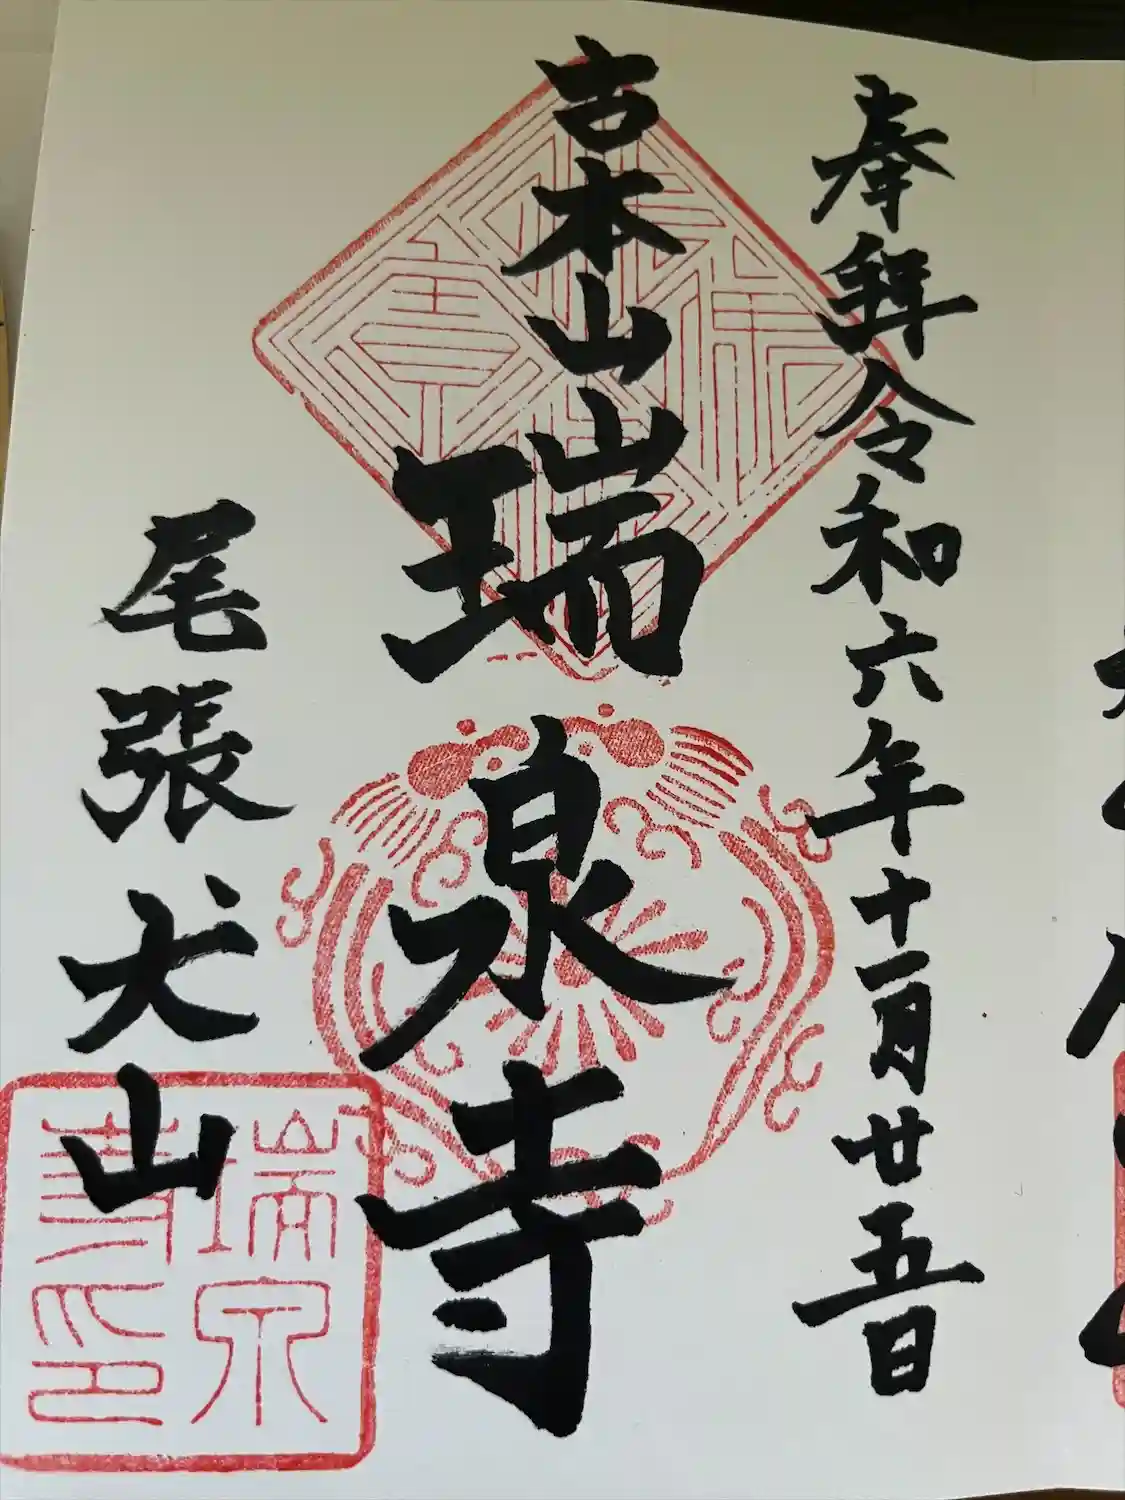 奉拝令和六年十一月廿五日
古本山瑞泉寺
尾張犬山
瑞泉
寺印